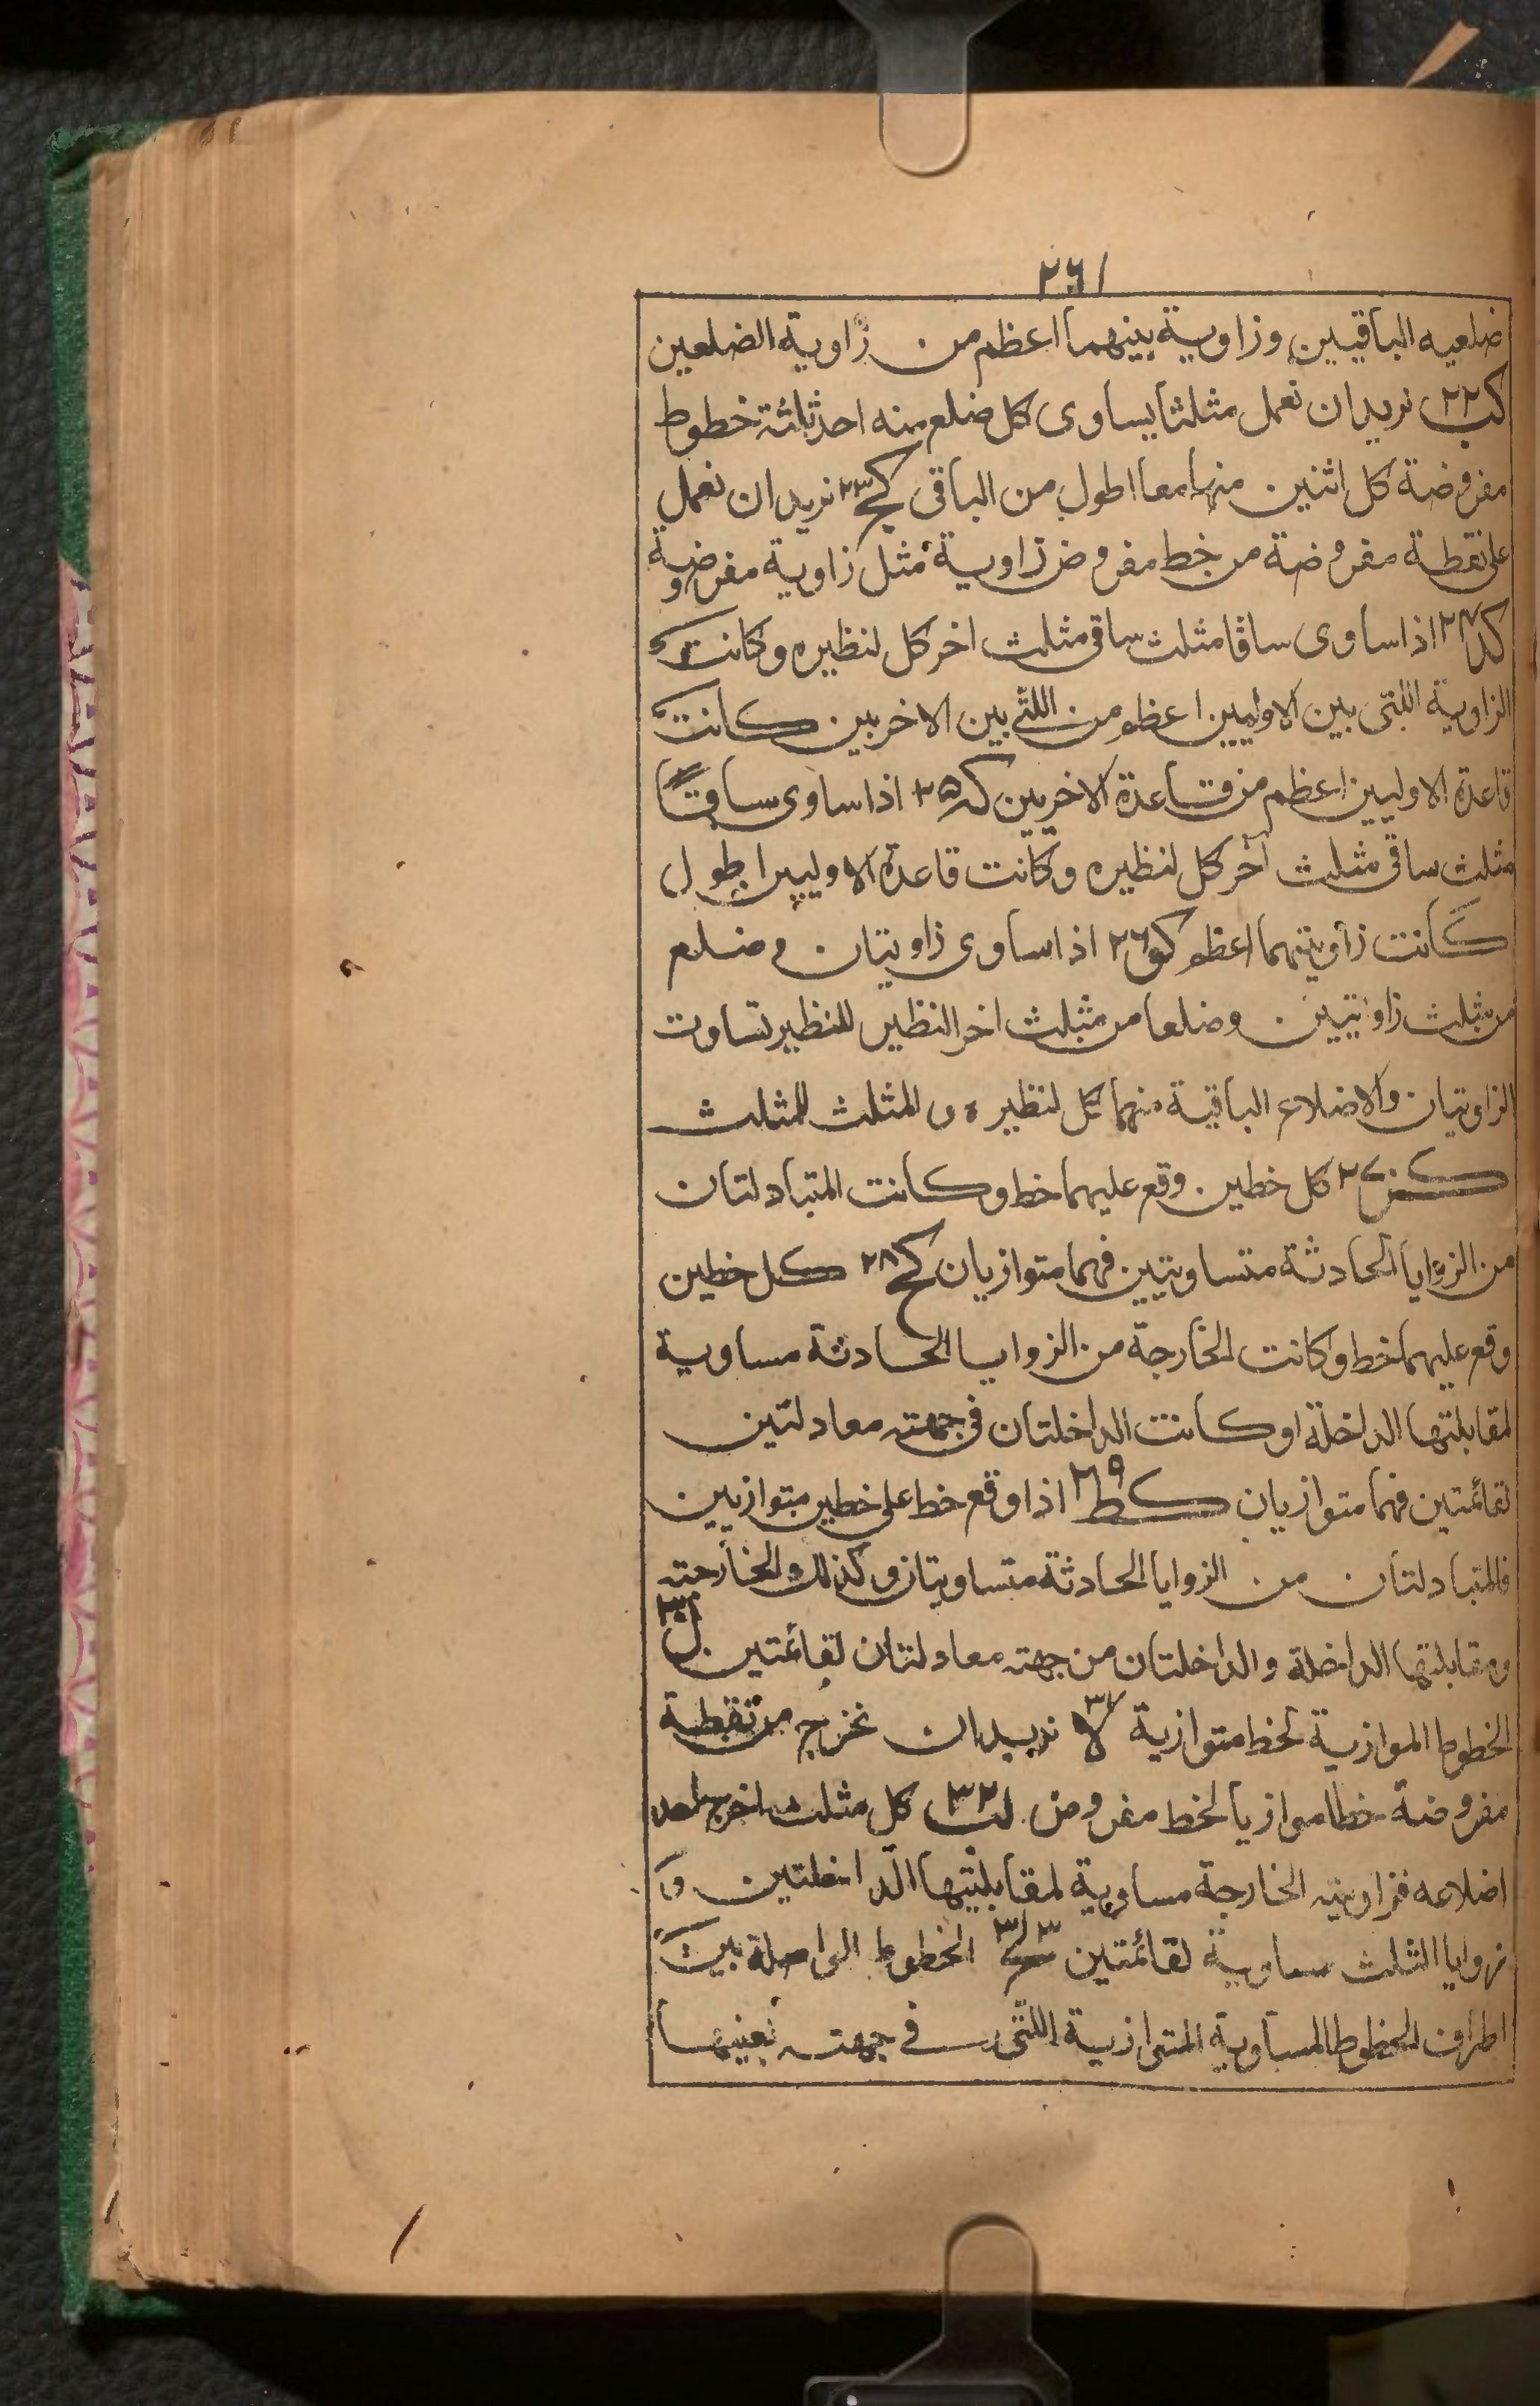 ٢٦١
ضلعيه الباقيين وزاوية بينهما اعظم من زاوية الضلعين
كب ٢٢ نريد ان نعمل مثلثا يساوى كل ضلع منه احد ثلثة خطوط
مفروضة كل اثنين منها معا اطول من الباقى كج ٢٣ نريد ان نعمل
على نقطة مفروضة من خط مفروض زاوية مثل زاوية مفروضة
كد ٢٤ اذا ساوى ساقا مثلث ساقى مثلث اخر كل لنظيره وكانت
الزاوية اللتى بين الاوليين اعظم من اللتى بين الاخريين كانت
قاعدة الاوليين اعظم من قاعدة الاخريين كه ٢٥ اذا ساوى ساقا
مثلث ساقى مثلث آخر كل لنظيره وكانت قاعدة الاوليين اطول
كانت زاويتهما اعظم كو ٢٦ اذا ساوى زاويتان وضلع
من مثلث زاويتين وضلعا من مثلث اخر النظير للنظير تساوت
الزاويتان والاضلاع الباقية منهما كل لنظيره والمثلث للمثلث
كز ٢٧ كل خطين وقع عليهما خط وكانت المتبادلتان
من الزوايا الحادثة متساويتين فهما متوازيان كح ٢٨ كل خطين
وقع عليهما خط وكانت الخارجة من الزوايا الحادثة مساوية
لمقابلتها الداخلة او كانت الداخلتان فى جهته معادلتين
لقائمتين فهما متوازيان كط ٢٩ اذا وقع خط على خطين متوازيين
فالمتبادلتان من الزوايا الحادثة متساويتان وكذلك الخارجته
ومقابلتها الداخلة والداخلتان من جهته معادلتان لقائمتين ل ٣٠
الخطوط الموازية لخط متوازية لا ٣١ نريد ان نخرج من نقطة
مفروضة خطا موازيا لخط مفروض لب ٣٢ كل مثلث اخرج احد
اضلاعه فزاويته الخارجة مساوية لمقابلتيها الداخلتين و
زوايا الثلث مساوية لقائمتين لج ٣٣ الخطوط الواصلة بين
اطراف الخطوط المساوية المتوازية اللتى فى جهته بعينها